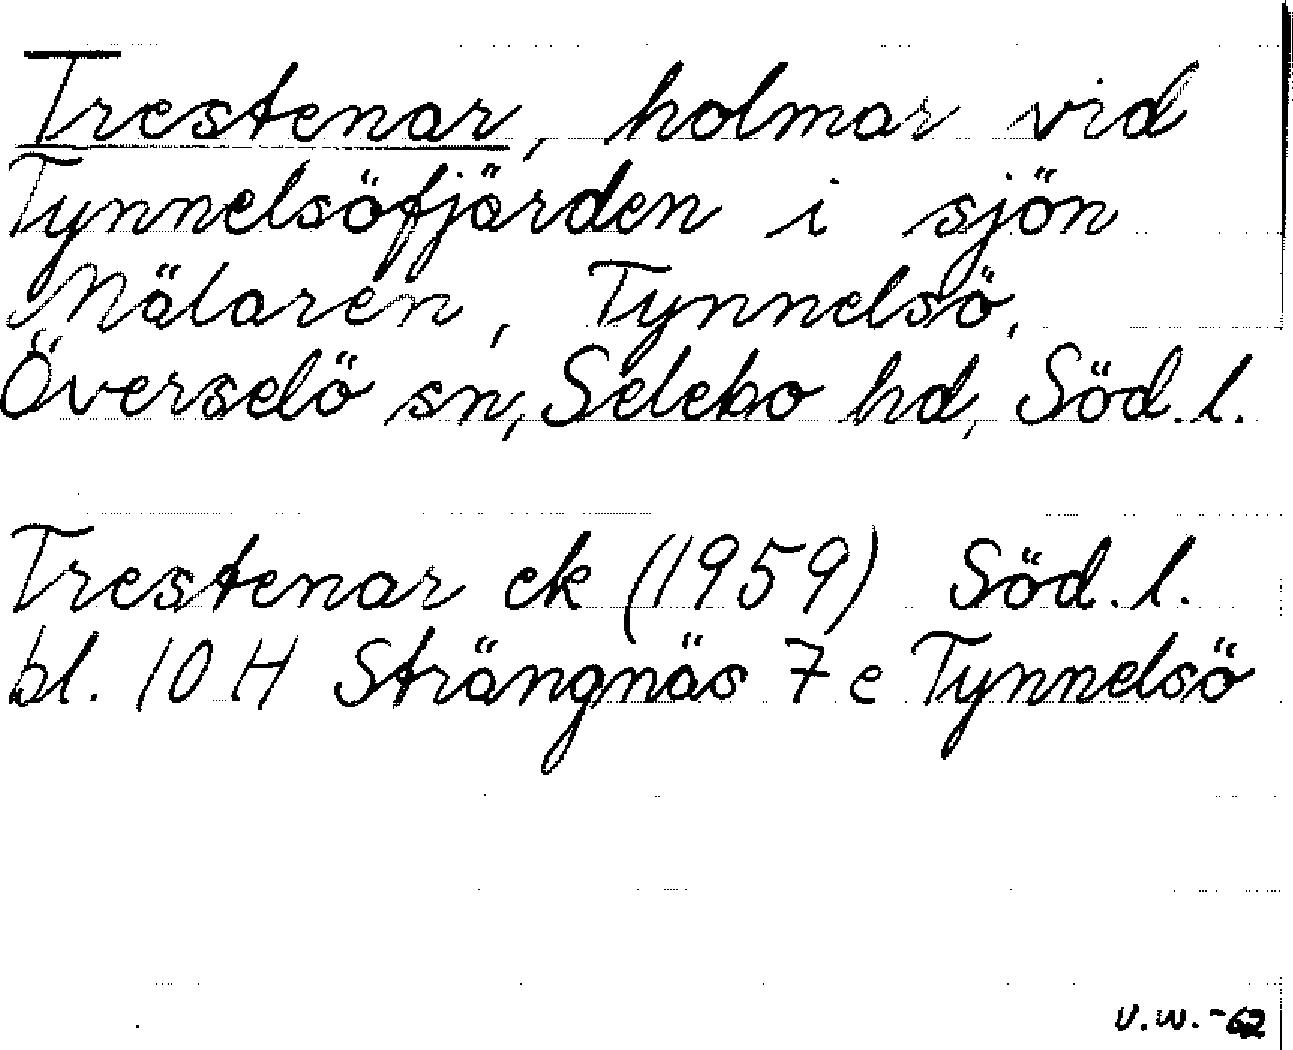 Trestenar, holmar vid
Tynnelsöfjärden i sjön
Mälaren, Tynnelsö,
Överselö sn, Selebo hd, Söd. l.
Trestenar ek (1959) Söd. l.
bl. 10 H Strängnäs 7 e Tynnelsö
V.W.-62